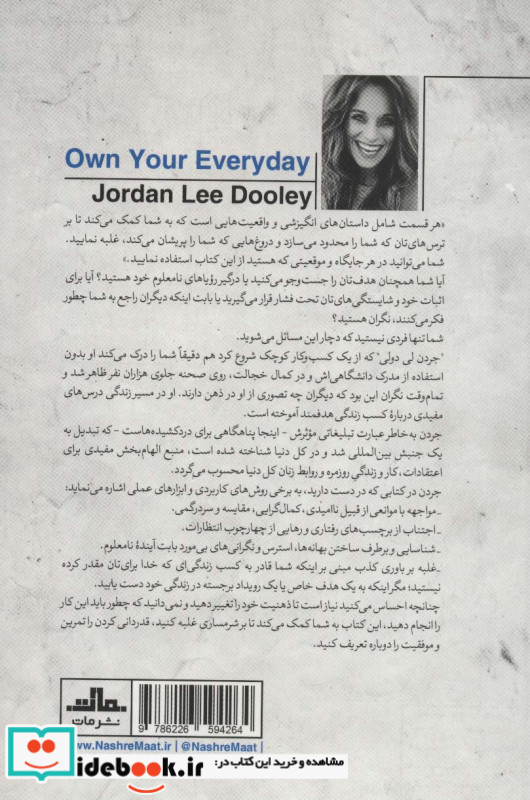 Own Your Everyday
Jordan Lee Dooley
«هر قسمت شامل داستان‌های انگیزشی و واقعیت‌هایی است که به شما کمک می‌کند تا بر
ترس‌های‌تان که شما را محدود می‌سازد و دروغ‌هایی که شما را پریشان می‌کند، غلبه نمایید.
شما می‌توانید در هر جایگاه و موقعیتی که هستید از این کتاب استفاده نمایید.»
آیا شما همچنان هدف‌تان را جست‌وجو می‌کنید یا درگیر رؤیاهای نامعلوم خود هستید؟ آیا برای
اثبات خود و شایستگی‌های‌تان تحت فشار قرار می‌گیرید یا بابت اینکه دیگران راجع به شما چطور
فکر می‌کنند، نگران هستید؟
شما تنها فردی نیستید که دچار این مسائل می‌شوید.
"جردن لی دولی" که از یک کسب‌وکار کوچک شروع کرد هم دقیقاً شما را درک می‌کند او بدون
استفاده از مدرک دانشگاهی‌اش و در کمال خجالت، روی صحنه جلوی هزاران نفر ظاهر شد و
تمام‌وقت نگران این بود که دیگران چه تصوری از او در ذهن دارند. او در مسیر زندگی درس‌های
مفیدی دربارهٔ کسب زندگی هدفمند آموخته است.
جردن به‌خاطر عبارت تبلیغاتی مؤثرش - اینجا پناهگاهی برای دردکشیده‌هاست - که تبدیل به
یک جنبش بین‌المللی شد و در کل دنیا شناخته شده است، منبع الهام‌بخش مفیدی برای
اعتقادات، کار و زندگیِ روزمره و روابط زنان کل دنیا محسوب می‌گردد.
جردن در کتابی که در دست دارید، به برخی روش‌های کاربردی و ابزارهای عملی اشاره می‌نماید:
ـ مواجهه با موانعی از قبیل ناامیدی، کمال‌گرایی، مقایسه و سردرگمی.
ـ اجتناب از برچسب‌های رفتاری و رهایی از چهارچوب انتظارات.
ـ شناسایی و برطرف ساختن بهانه‌ها، استرس و نگرانی‌های بی‌مورد بابت آیندهٔ نامعلوم.
ـ غلبه بر باوری کذب مبنی بر اینکه شما قادر به کسب زندگی‌ای که خدا برای‌تان مقدر کرده
نیستید؛ مگر اینکه به یک هدف خاص یا یک رویداد برجسته در زندگی خود دست یابید.
چنانچه احساس می‌کنید نیاز است تا ذهنیت خود را تغییر دهید و نمی‌دانید که چطور باید این کار
را انجام دهید، این کتاب به شما کمک می‌کند تا بر شرمساری غلبه کنید، قدردانی کردن را تمرین
و موفقیت را دوباره تعریف کنید.
مات
نشر مات
9 786226 594264
www.NashreMaat.ir | @NashreMaat |
مشاهده و خرید این کتاب در:
idebook.ir